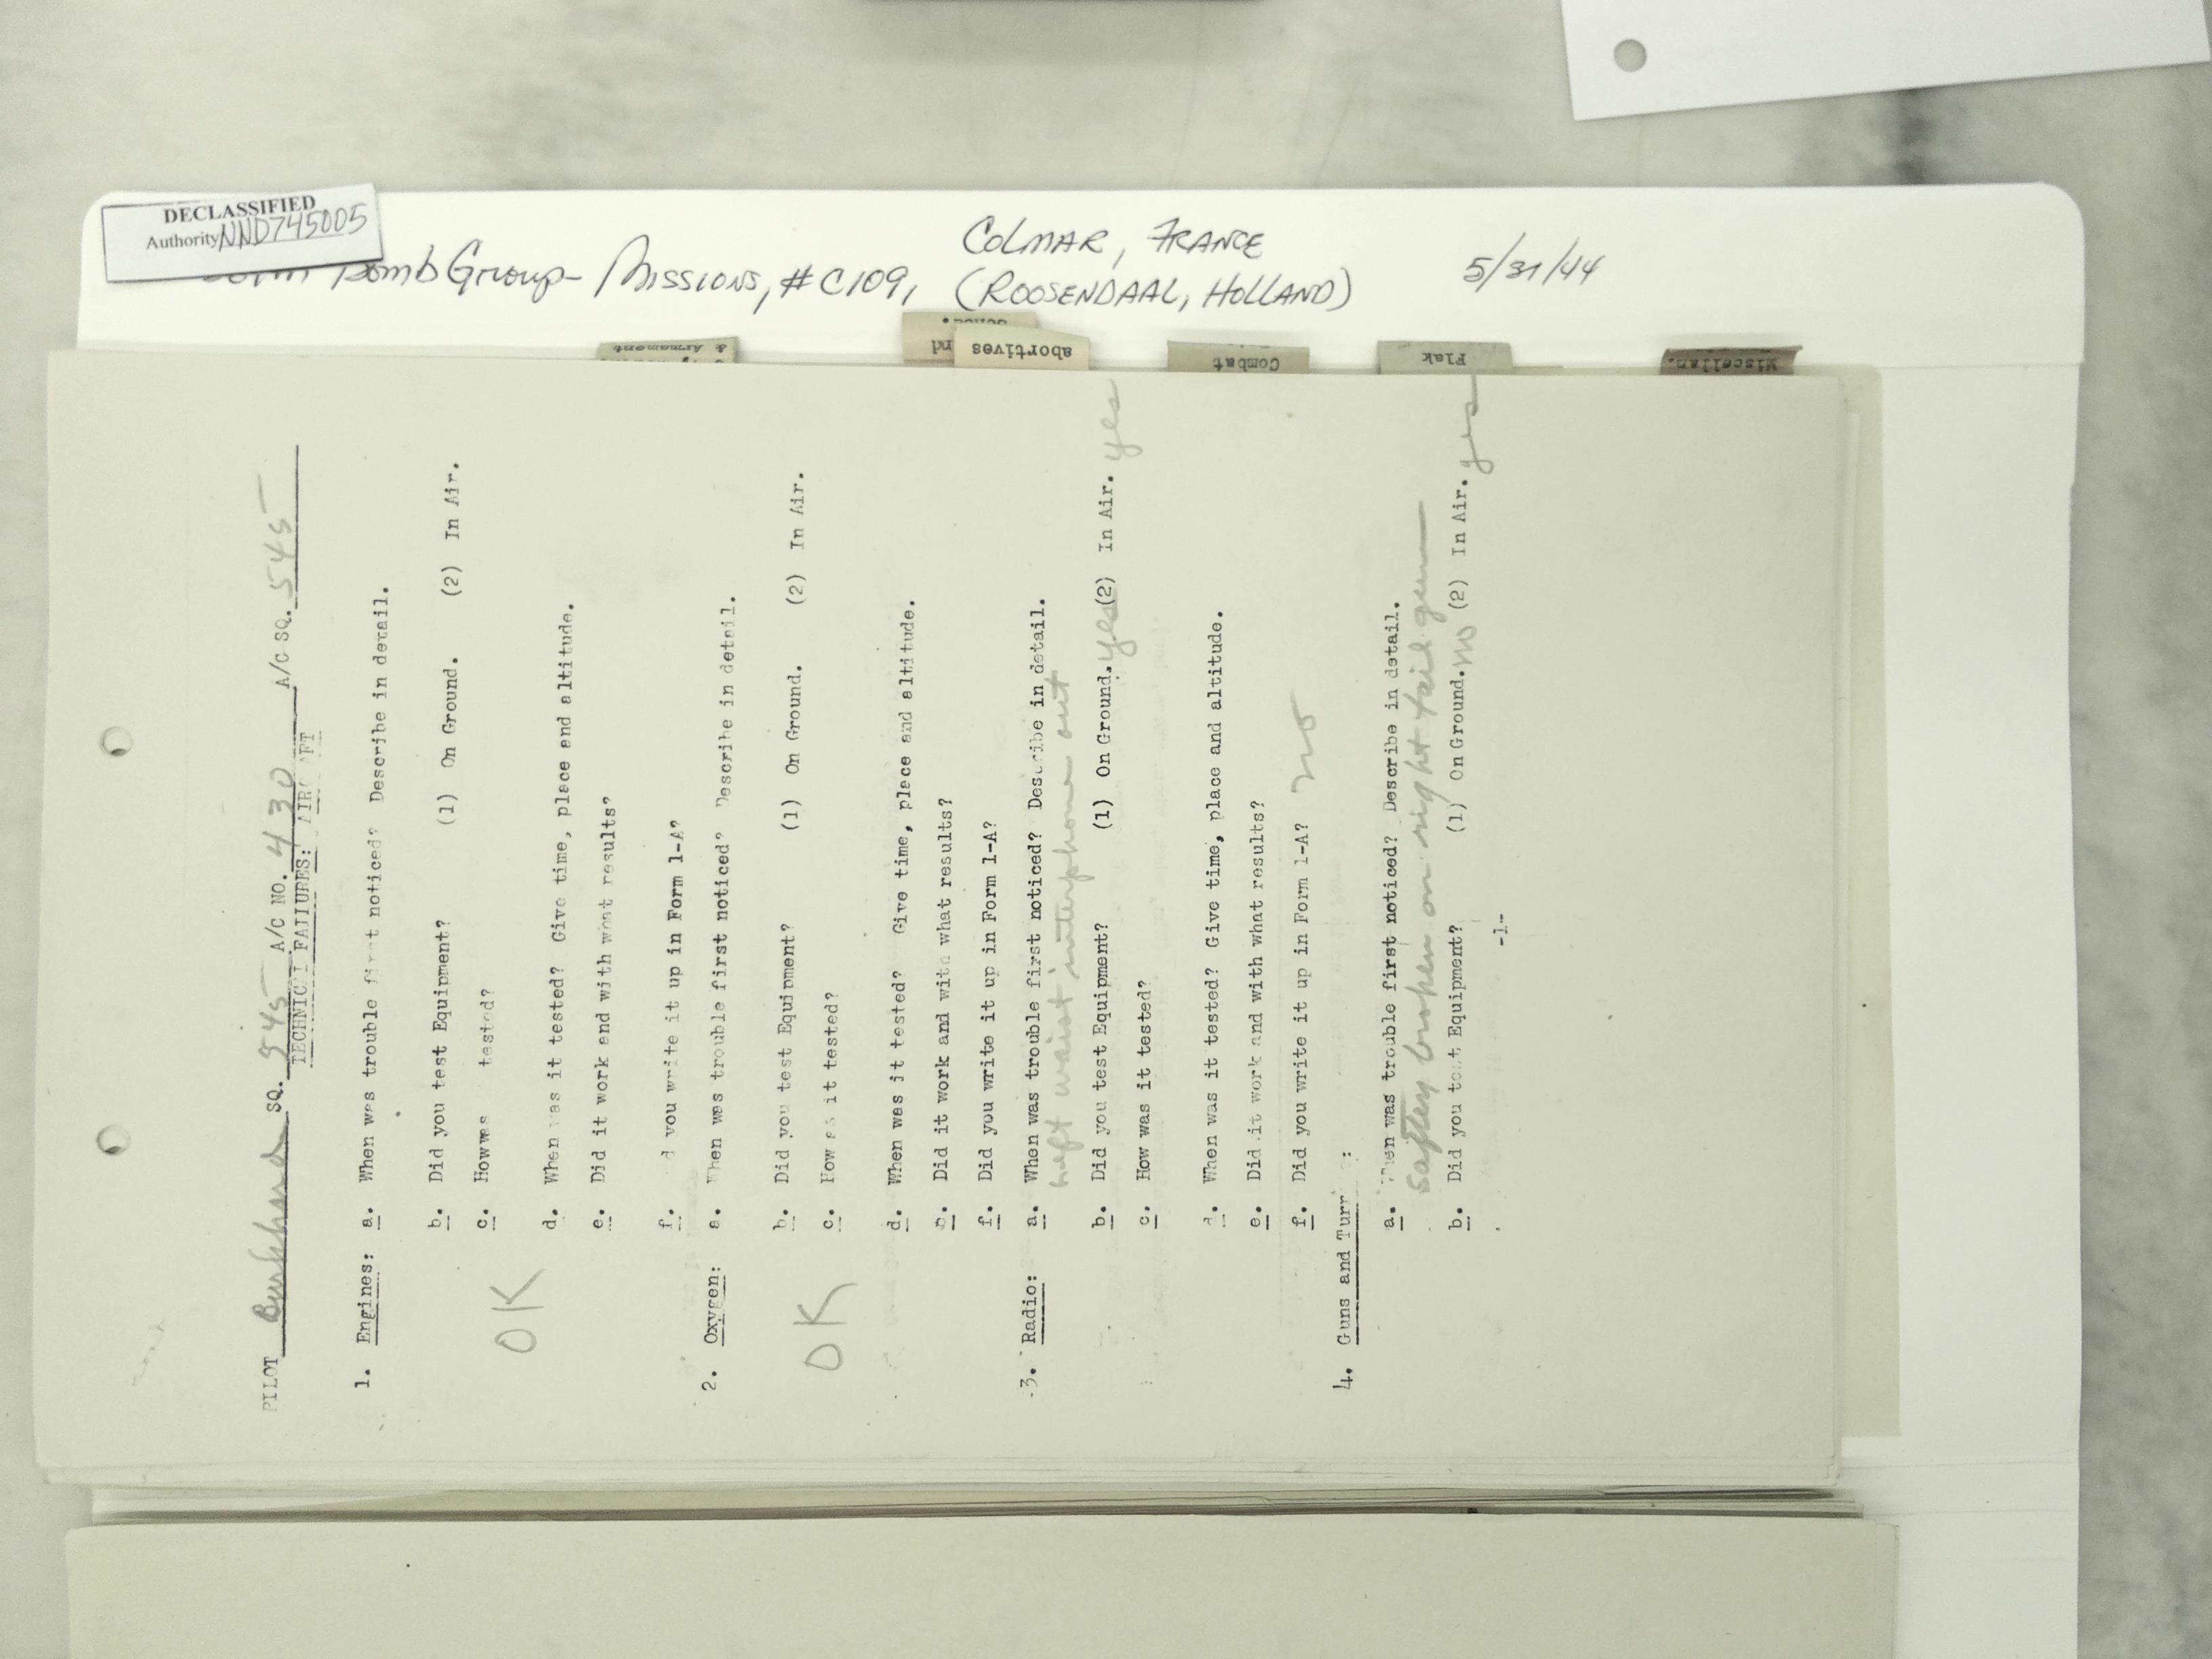 DECLASSIFIED
Authority NND745005
Bomb Group - Missions, #C109,
COLMAR, FRANCE
(ROOSENDAAL, HOLLAND)
5/31/44
& Armament
abortives
Combat
Flak
Miscellan.
PILOT Burkhard SQ. 545 A/C NO. 430 A/C SQ. 545
TECHNICAL FAILURES: AIRCRAFT
1. Engines: a. When was trouble first noticed? Describe in detail.
b. Did you test Equipment? (1) On Ground. (2) In Air.
c. How was tested?
OK
d. When was it tested? Give time, place and altitude.
e. Did it work and with what results?
f. d you write it up in Form 1-A?
2. Oxygen: a. When was trouble first noticed? Describe in detail.
b. Did you test Equipment? (1) On Ground. (2) In Air.
c. How as it tested?
OK
d. When was it tested? Give time, place and altitude.
e. Did it work and with what results?
f. Did you write it up in Form 1-A?
3. Radio: a. When was trouble first noticed? Describe in detail.
Left waist interphone out
b. Did you test Equipment? (1) On Ground. yes (2) In Air. yes
c. How was it tested?
d. When was it tested? Give time, place and altitude.
e. Did it work and with what results?
f. Did you write it up in Form 1-A? no
4. Guns and Turr :
a. When was trouble first noticed? Describe in detail.
Saftey broken on right tail gun
b. Did you test Equipment? (1) On Ground. no (2) In Air. yes
-1-